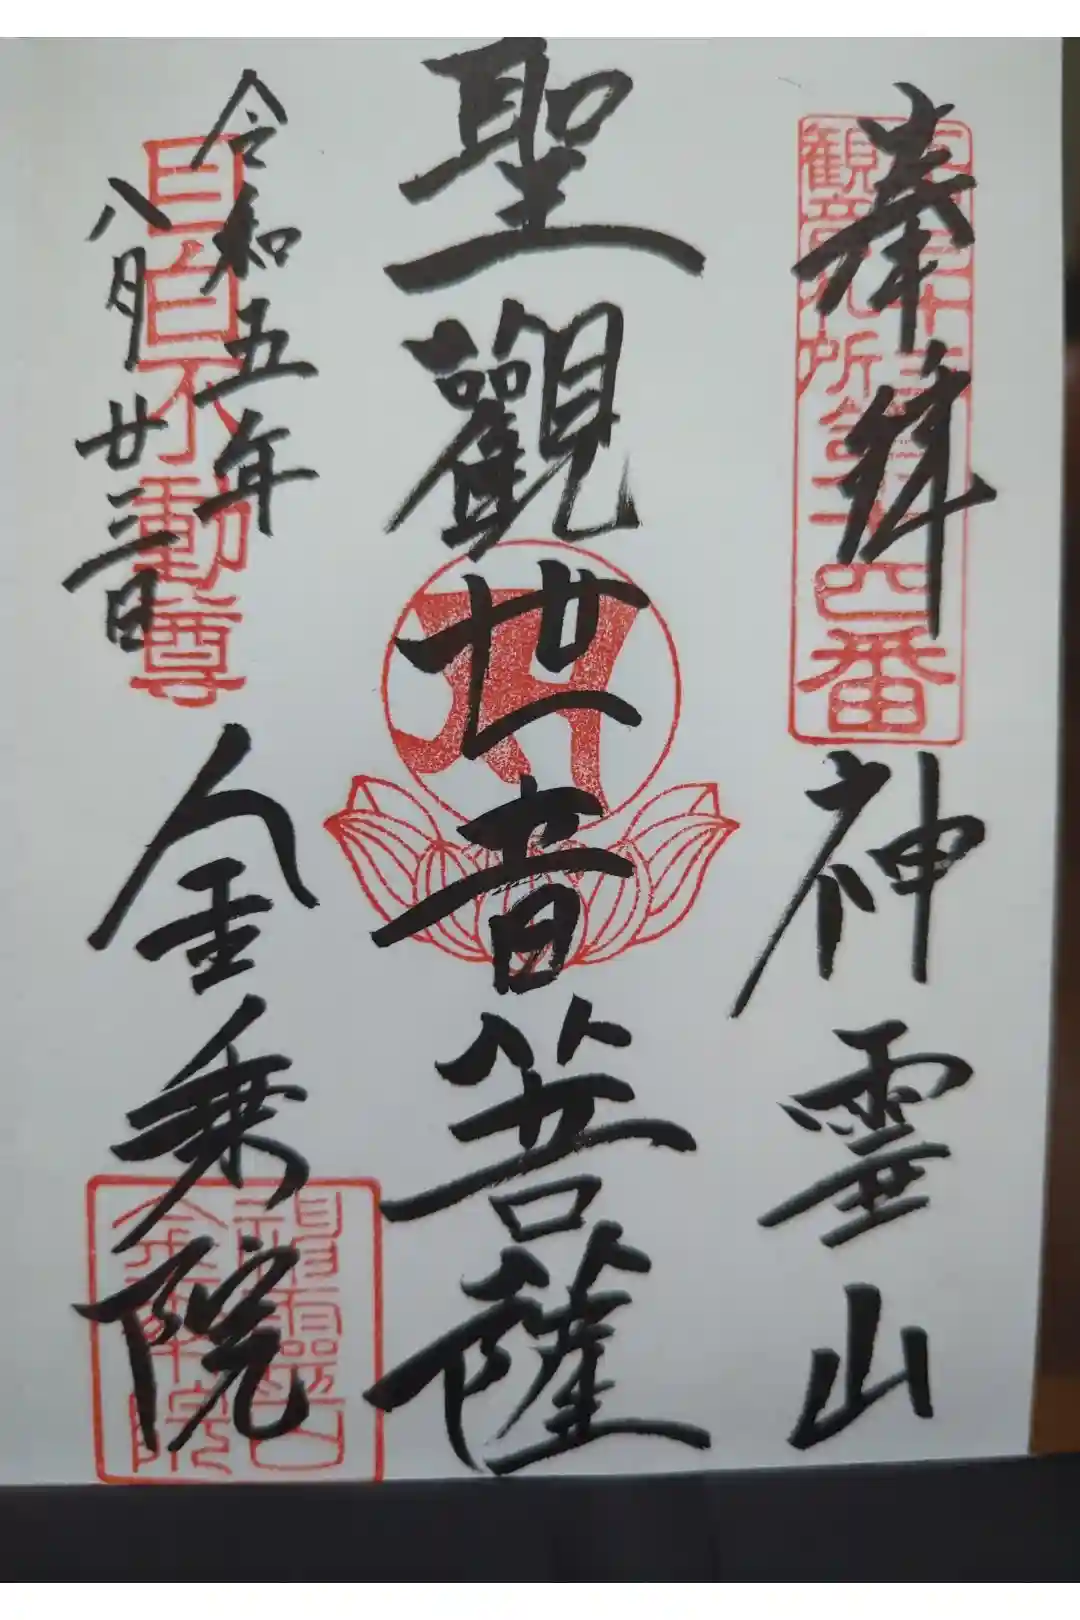 奉拝
神霊山
聖觀世音菩薩
令和五年
八月廿三日
金乗院
観音札所第十四番
目白不動尊
神霊山
金乗院